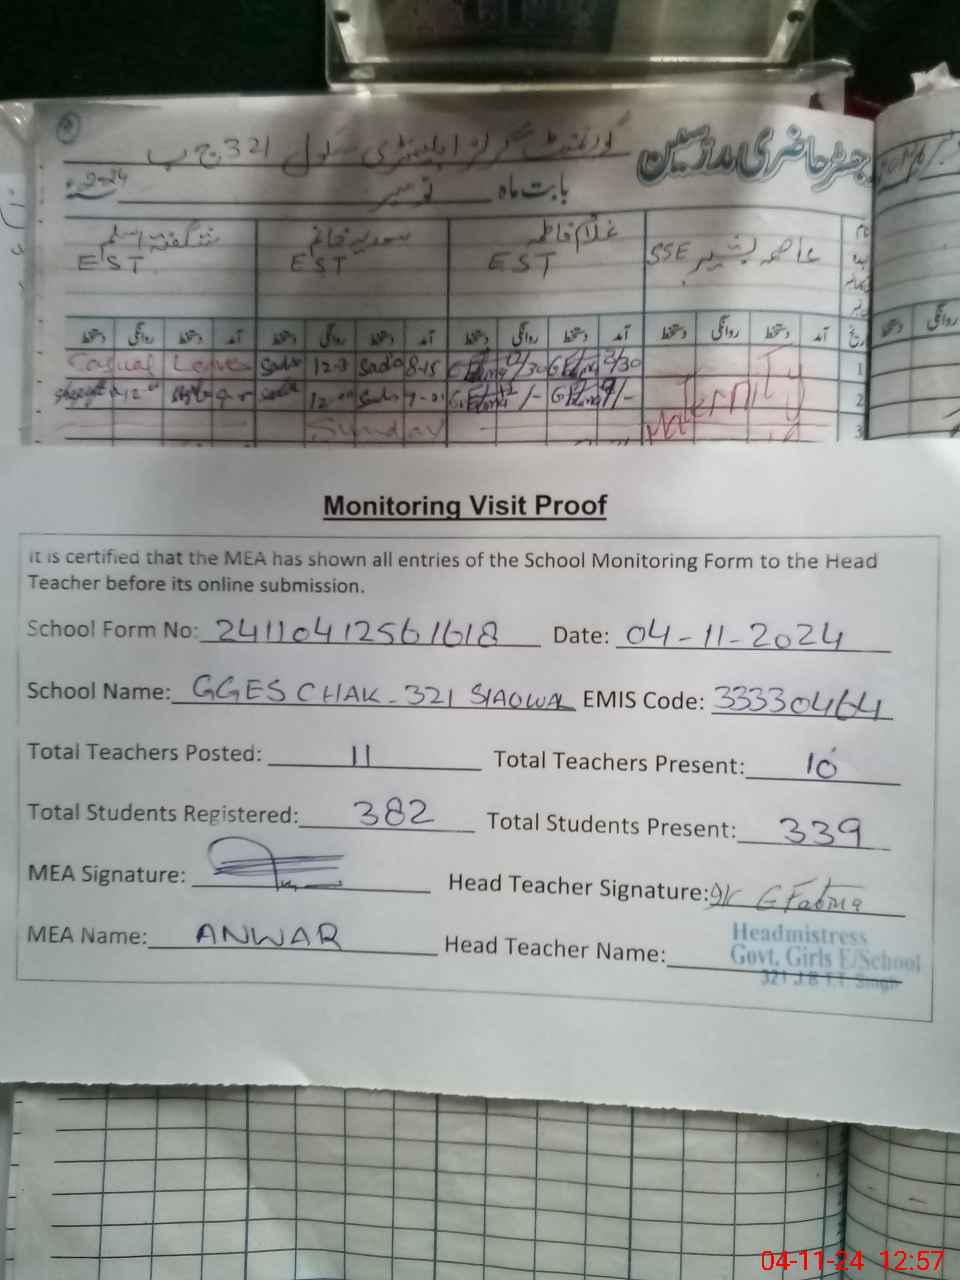 رجسٹر حاضری مدرسین
گورنمنٹ گرلز ایلیمنٹری سکول 321 ج ب
بابت ماہ نومبر 2024ء
عاصمہ بشیر SSE
غلام فاطمہ EST
سعدیہ خانم EST
شگفتہ اسلم EST
آمد دستخط روانگی دستخط آمد دستخط روانگی دستخط آمد دستخط روانگی دستخط آمد دستخط روانگی دستخط
Casual Leave 12-3 8-15 1
2
Sunday Maternity 3
Monitoring Visit Proof
It is certified that the MEA has shown all entries of the School Monitoring Form to the Head
Teacher before its online submission.
School Form No: 24110412561618 Date: 04-11-2024
School Name: GGES CHAK-321 SIAOWAL EMIS Code: 33330464
Total Teachers Posted: 11 Total Teachers Present: 10
Total Students Registered: 382 Total Students Present: 339
MEA Signature: Head Teacher Signature: G Fatima
MEA Name: ANWAR Head Teacher Name:
Headmistress
Govt. Girls E/School
321 J.B T.T. Singh
04-11-24 12:57